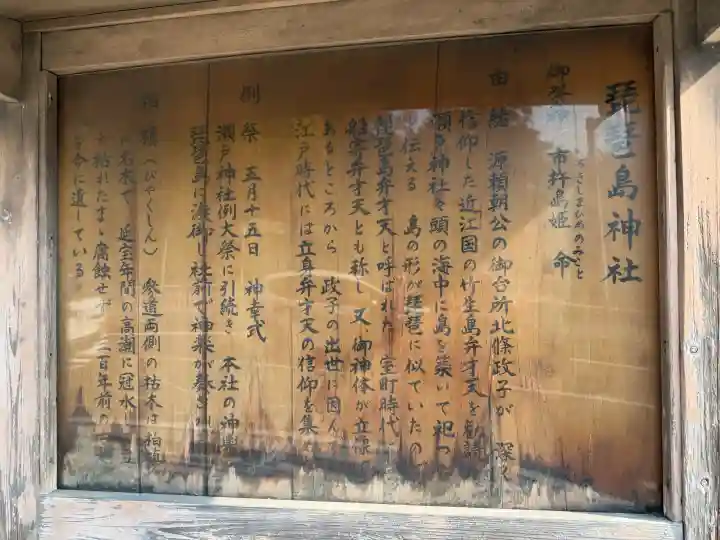 琵琶島神社
御祭神 市杵島姫命
いちきしまひめのみこと
由緒 源頼朝公の御台所北條政子が 深く
信仰した近江国の竹生島弁才天を勧請
瀬戸神社々頭の海中に島を築いて祀った
伝える 島の形が琵琶に似ていたので
琵琶島弁才天と呼ばれた 室町時代
弁才天とも称し 又 御神体が立像
あるところから 政子の出世に因ん
江戸時代には立身弁才天の信仰を集
例祭 五月十五日 神幸式
瀬戸神社例大祭に引続き 本社の神輿
琵琶島に渡御し社前で神楽が奏さ
柏槇(びゃくしん) 参道両側の枯木は柏槇
名木で 延宝年間の高潮に冠水し
枯れたまゝ腐蝕せず 三百年前の
今に遺している